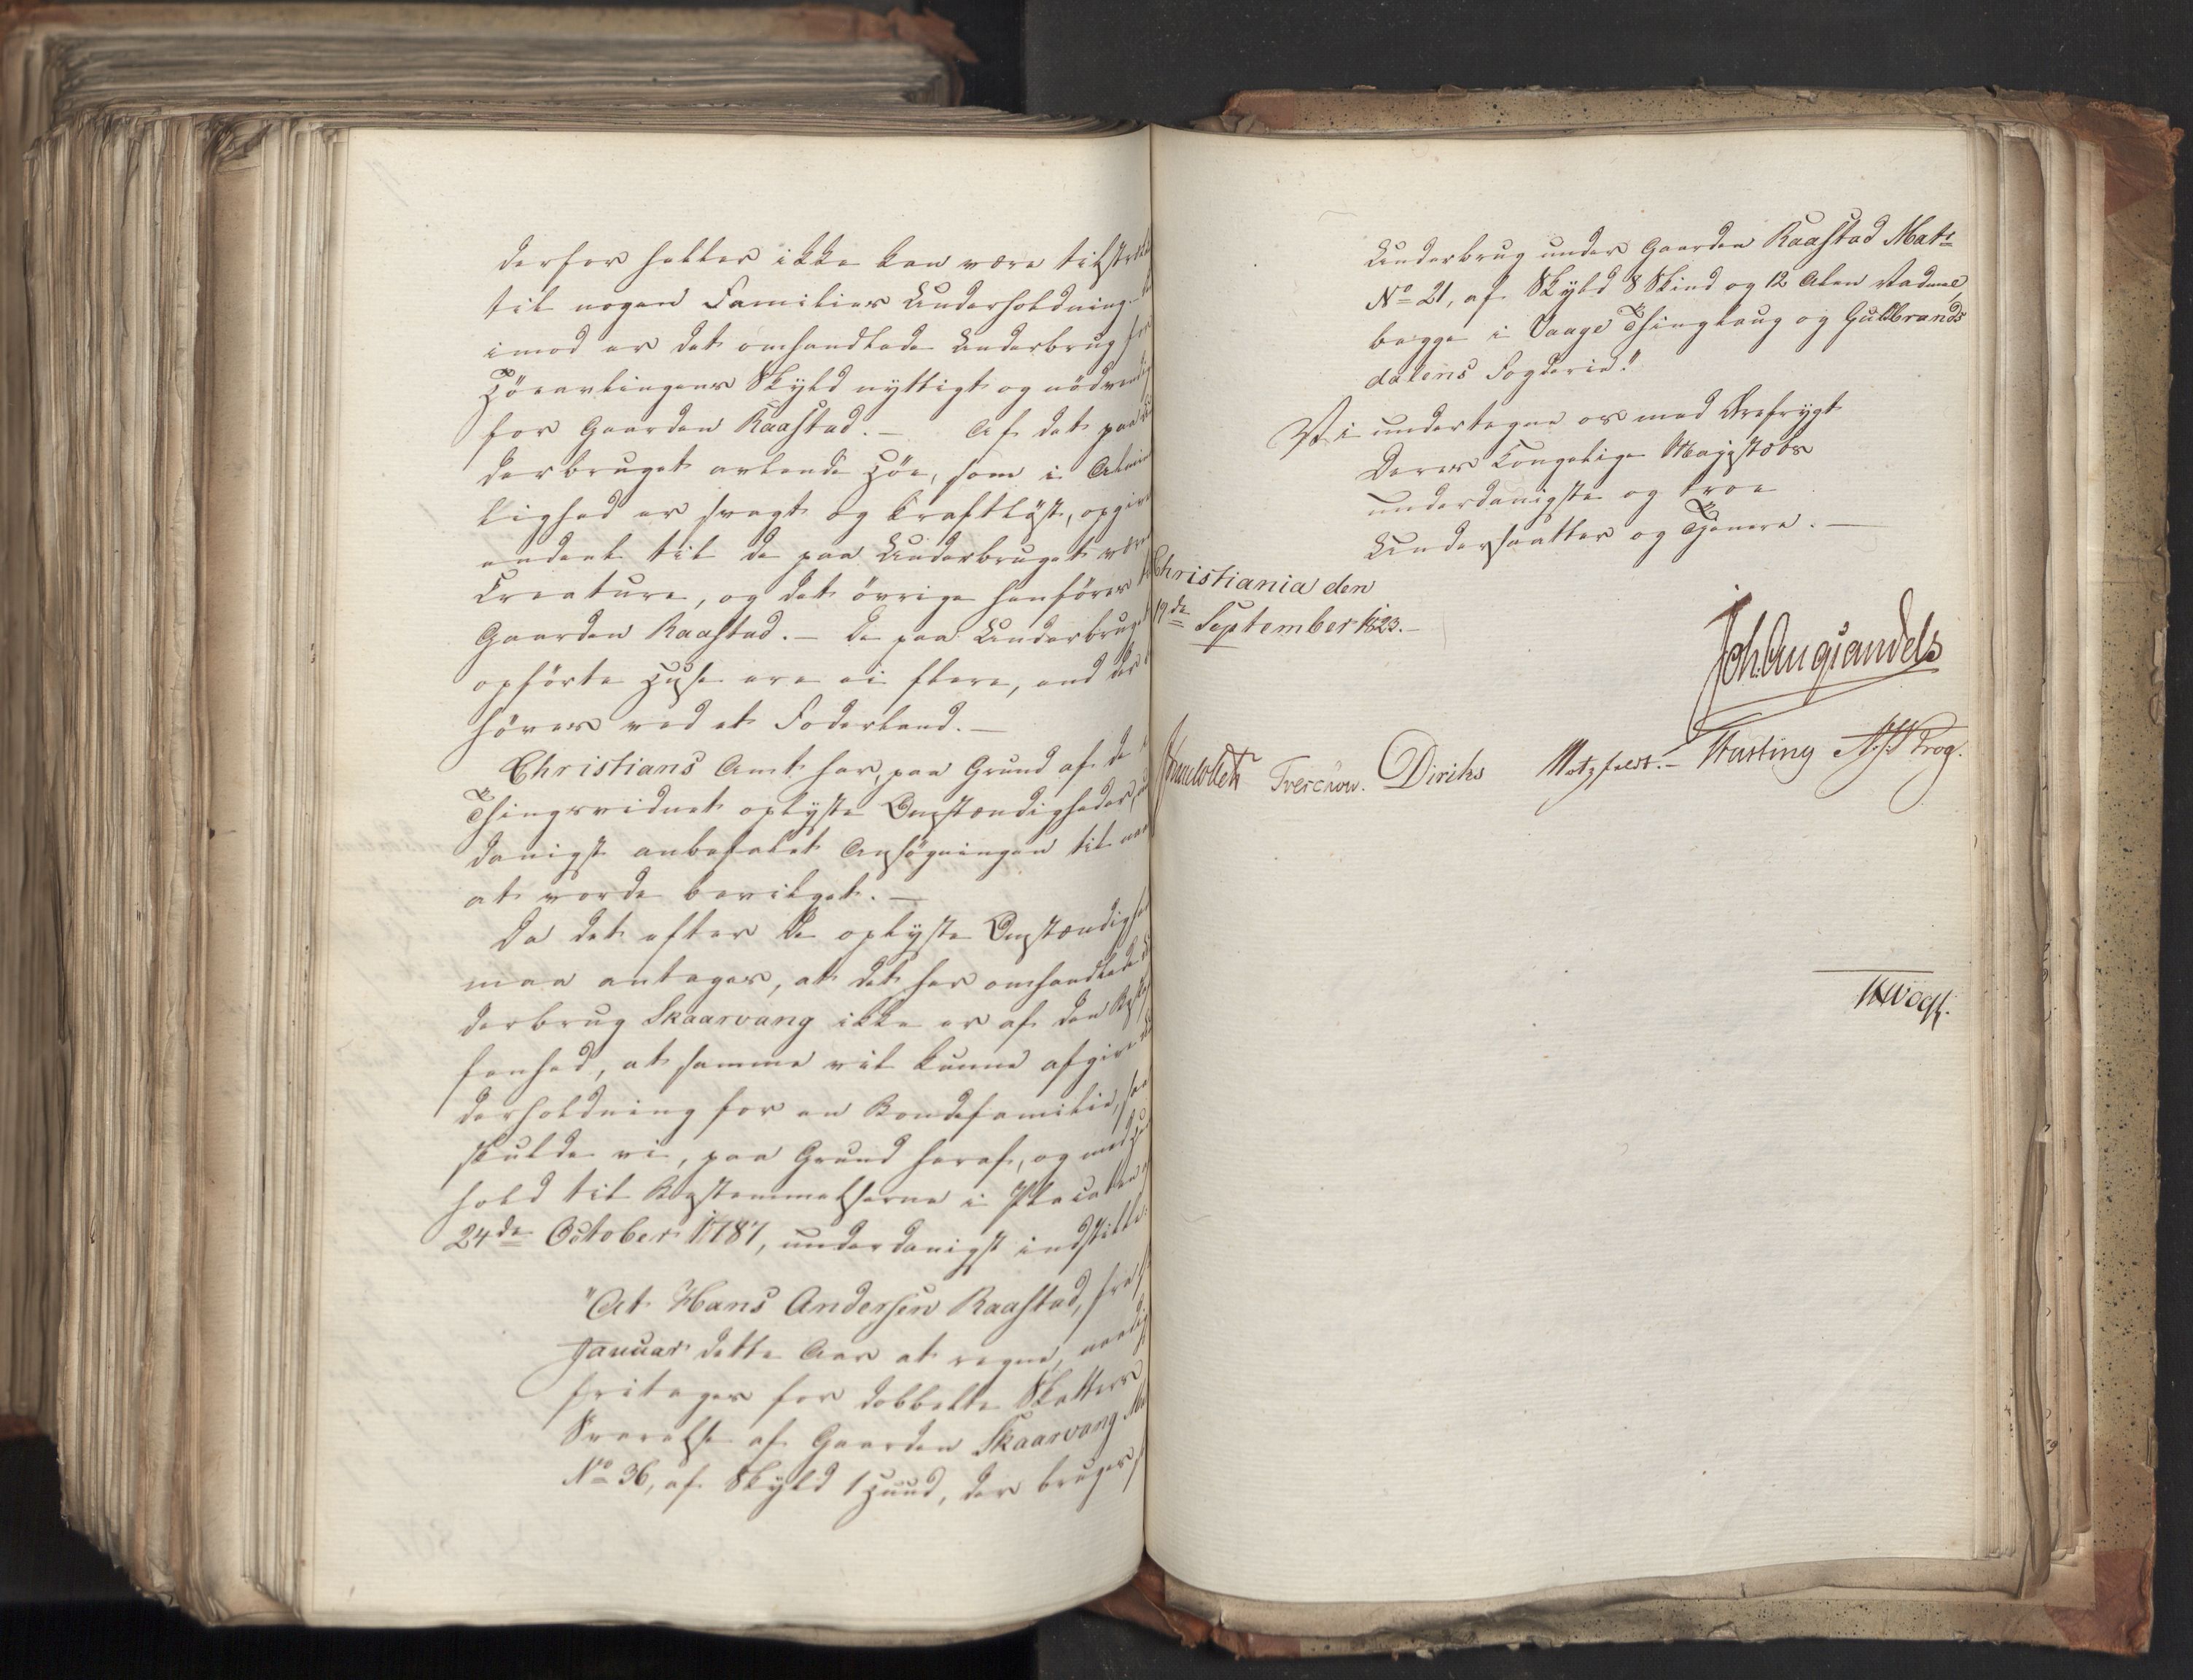 derfor heller ikke kan være
til nogen Families Underholdning.
imod er det omhandlede Underbrug for
Höeavlingens Skyld nyttigt og nödvendig
for Gaarden Raastad.— Af det paa
derbruget avlende Höe, som i Almin
lighed er svagt og kraftlöst, opgives
endeel til de paa Underbruget
Creature, og det övrige henföres
Gaarden Raastad.— De paa Underbruget
opförte Huse ere ei flere, end der
höves ved et Foderland.—
Christians Amt har, paa Grund af de
Thingsvidnet oplyste Omstændigheder,
danigst anbefalet Ansögningen til
at vorde bevilget.—
Da det efter de oplyste Omstændighed
maa antages, at det her omhandlede
derbrug Skaarvang ikke er af den Beskaf
fenhed, at samme vil kunne afgive
derholdning for en Bondefamilie, saa
skulde vi, paa Grund heraf, og med Hen
hold til Bestemmelserne i Placaten
24de October 1787, underdanigst indstille:
"At Hans Andersen Raastad, fra
Januar dette Aar at regne, naadigst
fritages for dobbelte Skatters
Svarelse af Gaarden Skaarvang
No 36, af Skyld 1 Huud, der bruges
Underbrug under Gaarden Raastad Matr
No 21, af Skyld 8 Skind og 12 Alen Vadmel,
begge i Vaage Thinglaug og Guldbrands
dalens Fogderie."
Vi undertegne os med Ærefrygt
Deres Kongelige Majestæts
underdanigste og troe
Undersaatter og Tjenere.—
Christiania den
19de September 1823.—
Joh. Aug Sandels
Treschow. Diriks Motzfeldt.— Hasting Krog.
Vogt.